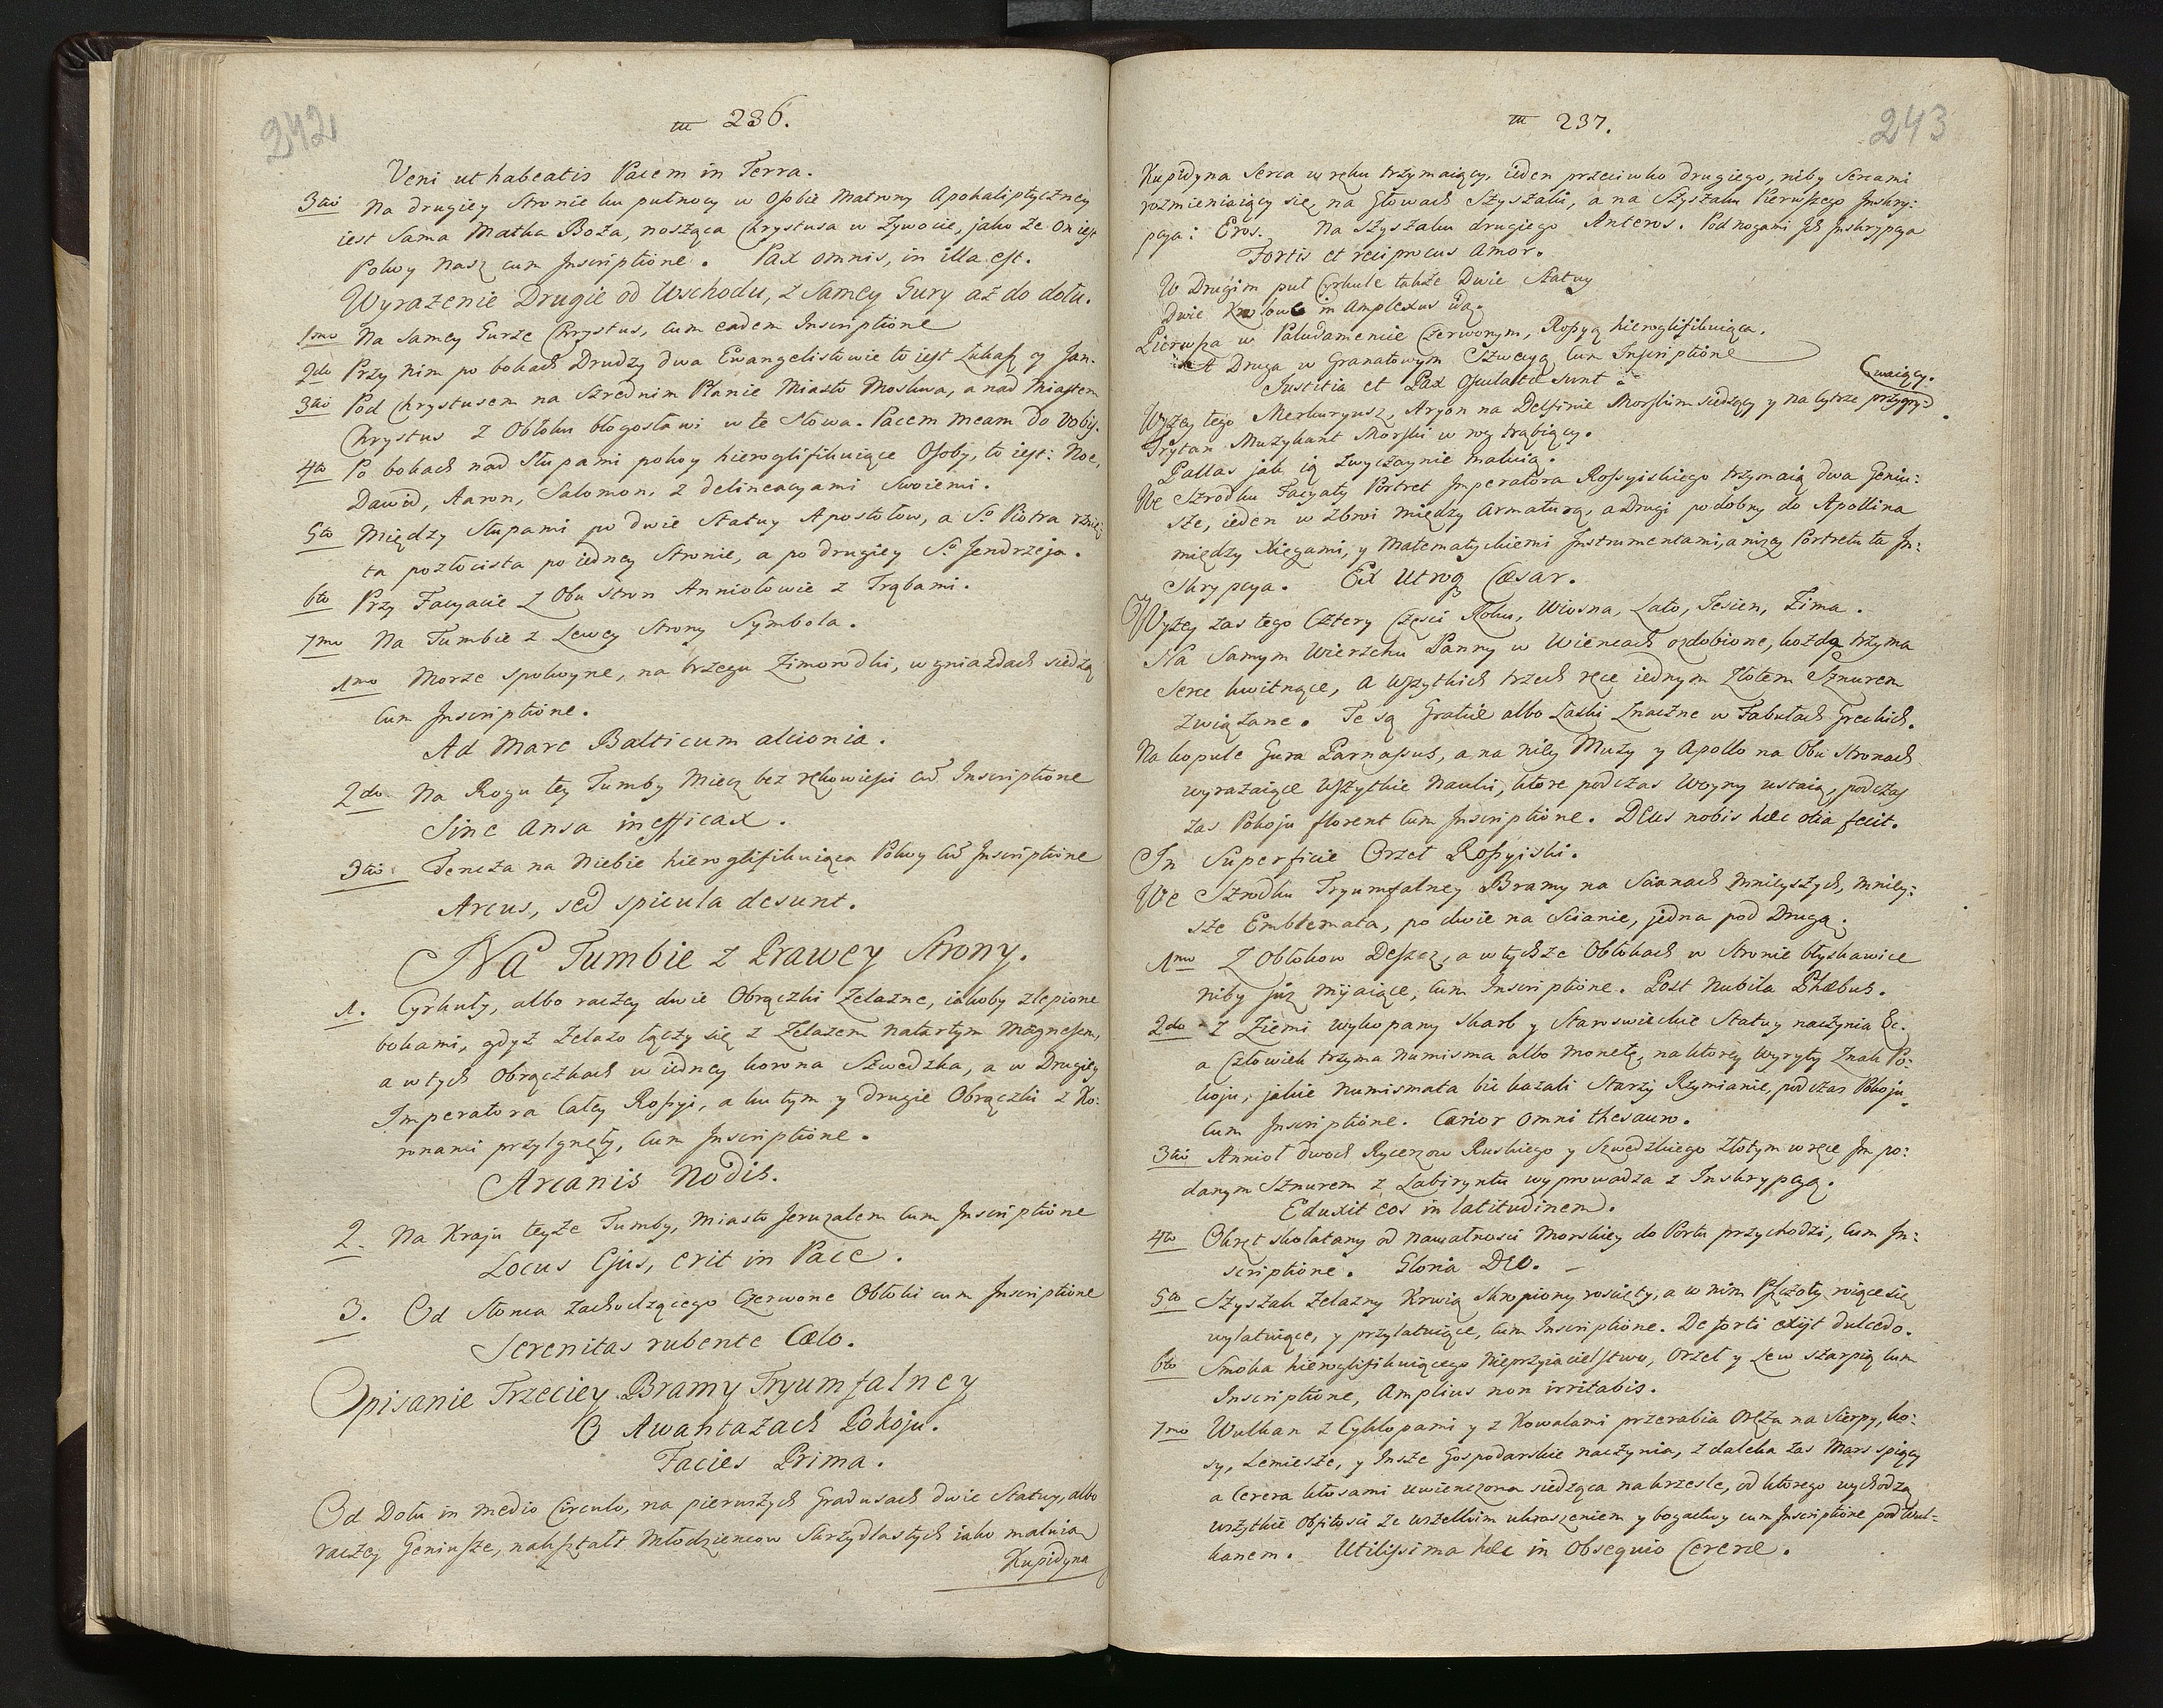 242
m 236.
Veni ut habeatis Pacem in Terra.
3tio Na drugiey Stronie ku pułnocy w Osobie Matrony Apokaliptyczney
iest Sama Matka Boża, nosząca Chrystusa w Zywocie, jako że On iest
Pokoy Nasz cum Inscriptione. Pax omnis, in illa est.
Wyrażenie Drugie od Wschodu, z Samey Gury aż do dołu.
1mo Na Samey Gurze Chrystus, cum eadem Inscriptione
2do Przy Nim po bokach Drudzy dwa Ewangelistowie to iest Łukasz y Jan.
3tio Pod Chrystusem na Szrednim Planie Miasto Moskwa, a nad Miastem
Chrystus z Obłoku błogosławi w te Słowa. Pacem meam do Vobis.
4to Po bokach nad Słupami pokoy hieroglifikuiące Osoby, to iest: Noe,
Dawid, Aaron, Salomon, z delineacyami Swoiemi.
5to Między Słupami po dwie Statuy Apostołow, a So Piotra rznię:
ta pozłocista po iedney Stronie, a po drugiey So Jendrzeja.
6to Przy Facyacie z Obu Stron Anniołowie z Trąbami.
7mo Na Tumbie z Lewey Strony Symbola.
1mo Morze spokoyne, na brzegu Zimorodki, w gniazdach siedzą
cum Inscriptione.
Ad Mare Balticum alcionia.
2do Na Rogu tey Tumby Miecz bez rękowieści cum Inscriptione
Sine ansa inefficax.
3tio: Tencza na Niebie hieroglifikuiąca Pokoy cum Inscriptione
Arcus, sed spicula desunt.
Na Tumbie z Prawey Strony.
1. Cyrkuły, albo raczey dwie Obrączki Zelazne, iakoby zlepione
bokami, gdyż żelazo łączy się z Zelazem natartym Magnesem,
a w tych Obrączkach w iedney korona Szwedzka, a w Drugiey
Imperatora Całey Rossyi, a ku tym y drugie Obrączki z Ko:
ronami przylgnęły, cum Inscriptione.
Arcanis Nodis.
2. Na Kraju teyże Tumby, Miasto Jeruzalem cum Inscriptione
Locus Ejus, erit in Pace.
3. Od Słonca zachodzącego Czerwone Obłoki cum Inscriptione
Serenitas rubente Cœlo.
Opisanie Trzeciey Bramy Tryumfalney
O Awantażach Pokoju.
Facies Prima.
Od Dołu in medio Circulo, na pierwszych Gradusach dwie Statuy, albo
raczey Geniusze, nakształt Młodziencow Skrzydlastych iako maluią
Kupidyna
243
m 237.
Kupidyna Serca w ręku trzymaiący, ieden przeciwko drugiego, niby Sercami
rozmieniaiący się, na Głowach Szyszaki, a na Szyszaku Pierwszego Inskry:
pcya: Eros. Na Szyszaku drugiego Anteros. Pod nogami Jch Inskrypcya
Fortis et reciprocus Amor.
W Drugim puł Cyrkule także Dwie Statuy
Dwie Krolowe in Amplexus idą.
Pierwsza w Paludamencie Czerwonym, Rossyą hieroglifikuiąca.
A Druga w Granatowym Szwecyą cum Inscriptione
Justitia et Pax Osculatæ sunt.
Wyżey tego Merkuryusz, Aryon na Delfinie Morskim siedzący y na lytrze przygry:
waiący.
Tryton Muzykant Morski w rog trąbiący.
Pallas jak ią zwyczaynie maluią.
We Szrodku Facyaty Portret Imperatora Rossyiskiego trzymaią dwa Geniu:
sze, ieden w zbroi między Armaturą, a Drugi podobny do Apollina
między Xięgami, y Matematyckiemi Instrumentami, a niżey Portretu ta In:
skrypcya. Ex Utroq Cæsar.
Wyżey zas tego Cztery Części Roku, Wiosna, Lato, Jesien, Zima.
Na Samym Wierzchu Panny w Wiencach ozdobione, każda trzyma
Serce kwitnące, a Wszytkich trzech ręce iednym Złotem Sznurem
związane. Te są Gratiæ albo Łaski Znaczne w Fabułach Greckich.
Na kopule Gura Parnassus, a na niey Muzy y Apollo na Obu Stronach
wyrażaiące Wszytkie Nauki, ktore podczas Woyny ustaią, podczas
zas Pokoju florent cum Inscriptione. Deus nobis hæc otia fecit.
In Superficie Orzeł Rossyiski.
We Szrodku Tryumfalney Bramy na Scianach Mnieyszych, mniey:
sze Emblemata, po dwie na Scianie, jedna pod Drugą.
1mo Z Obłokow Deszcz, a w tychże Obłokach w Stronie błyskawice
niby już mijaiące, cum Inscriptione. Post Nubila Phœbus.
2do Z Ziemi wykopany Skarb y Staroswieckie Statuy naczynia &c.
a Człowiek trzyma Numisma albo Monetę, na ktorey Wyryty Znak Po:
koju, jakie Numismata bić kazali Starzy Rzymianie, podczas Pokoju
cum Inscriptione. Carior omni thesauro.
3tio Annioł dwoch Rycerzow Ruskiego y Szwedzkiego Złotym w ręce Jm po:
danym Sznurem z Labiryntu wyprowadza z Inskrypcyą.
Eduxit eos in latitudinem.
4to Okręt skołatany od Nawałnosci Morskiey do Portu przychodzi, cum In:
scriptione. Gloria Deo.
5to Szyszak żelazny Krwią skropiony roscięty, a w nim Pszczoły roiące się
wylatuiące, y przylatuiące, cum Inscriptione. De forti exijt dulcedo.
6to Smoka hieroglifikuiącego Nieprzyiacielstwo, Orzeł y Lew szarpią cum
Inscriptione, Amplius non irritabis.
7mo Wulkan z Cyklopami y z Kowalami przerabia Oręża na Sierpy, ko:
sy, Lemiesze, y Insze Gospodarskie naczynia, z daleka zas Mars spiący
a Cerera kłosami uwienczona siedząca na krzesle, od ktorego wychodzą
wszytkie Obfitosci ze wszelkim ukraszeniem y bogactwy cum Inscriptione pod Wul-
kanem. Utilissima hæc in Obsequio Cereræ.